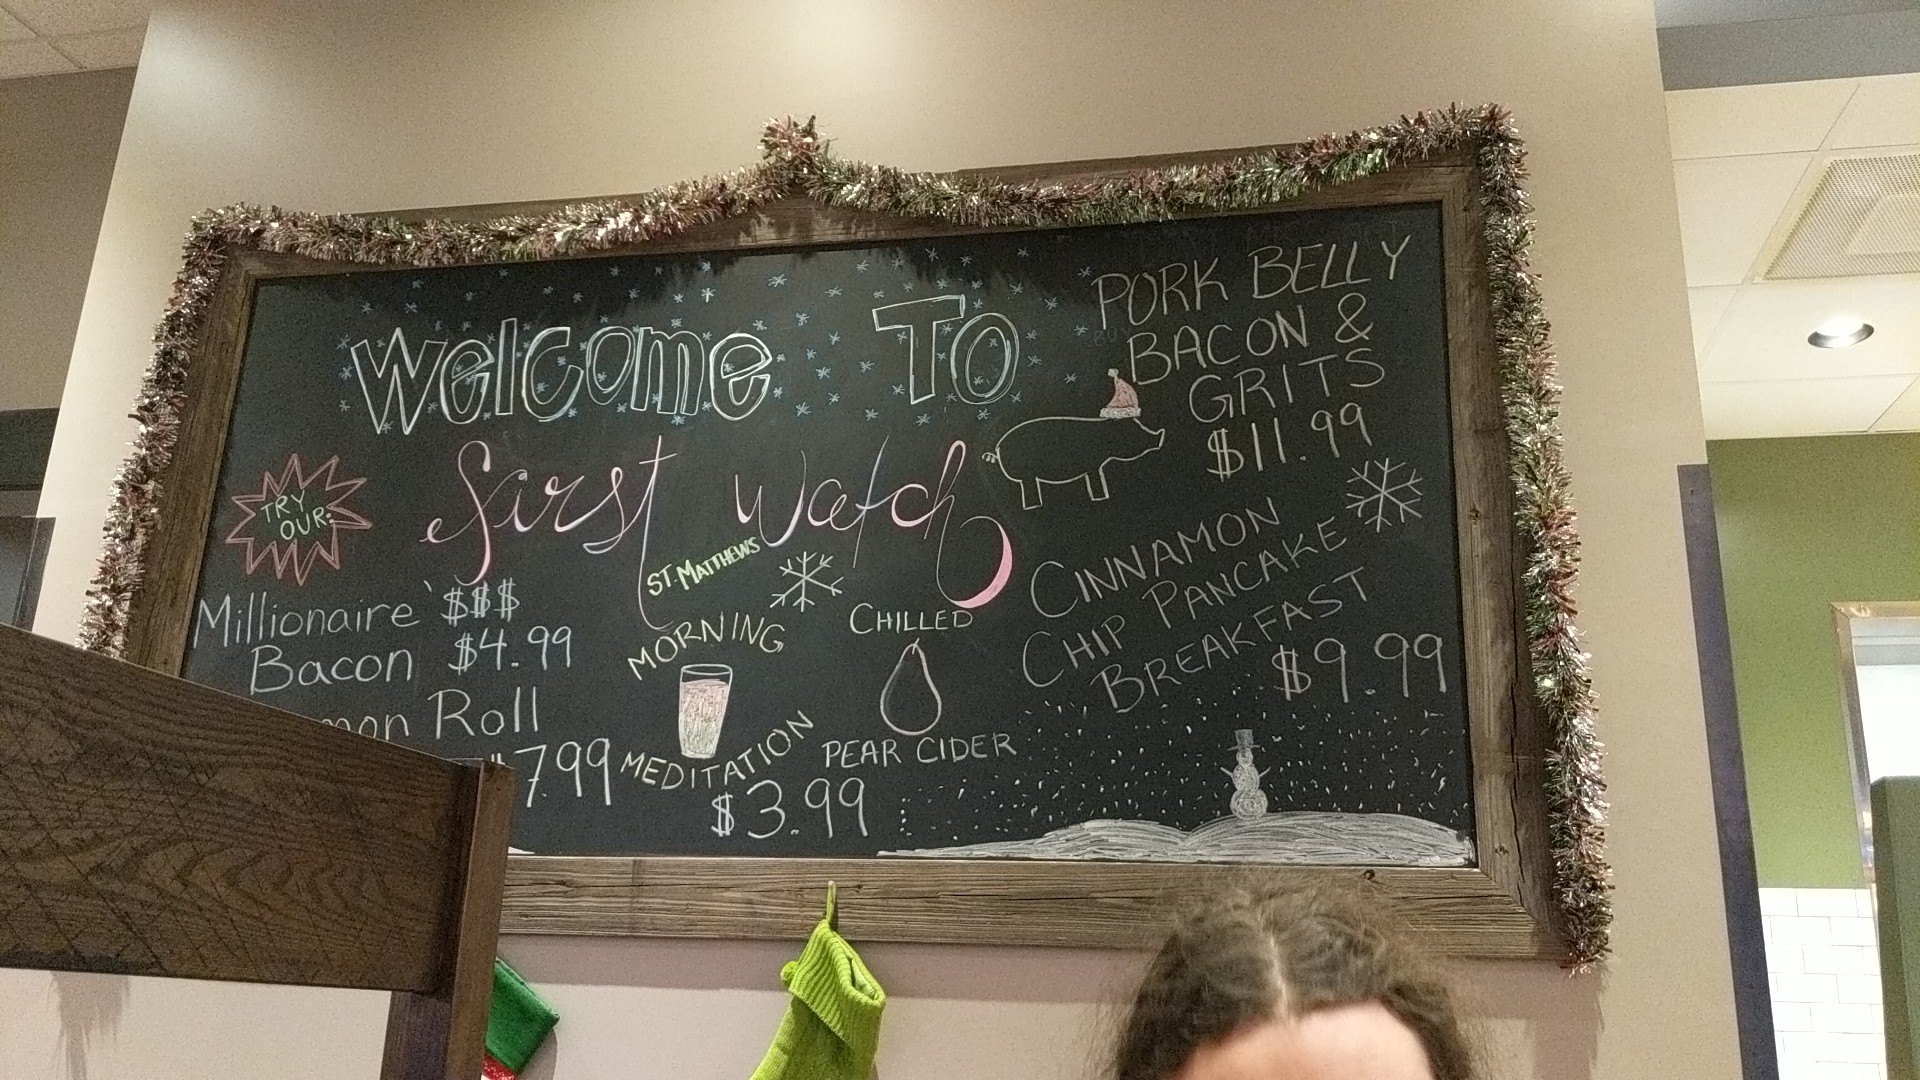 Welcome To
first watch
ST. MATTHEWS
TRY
OUR:
Millionaire $$$
Bacon $4.99
Roll
7.99
MORNING
MEDITATION
$3.99
CHILLED
PEAR CIDER
PORK BELLY
BACON &
GRITS
$11.99
CINNAMON
CHIP PANCAKE
BREAKFAST
$9.99